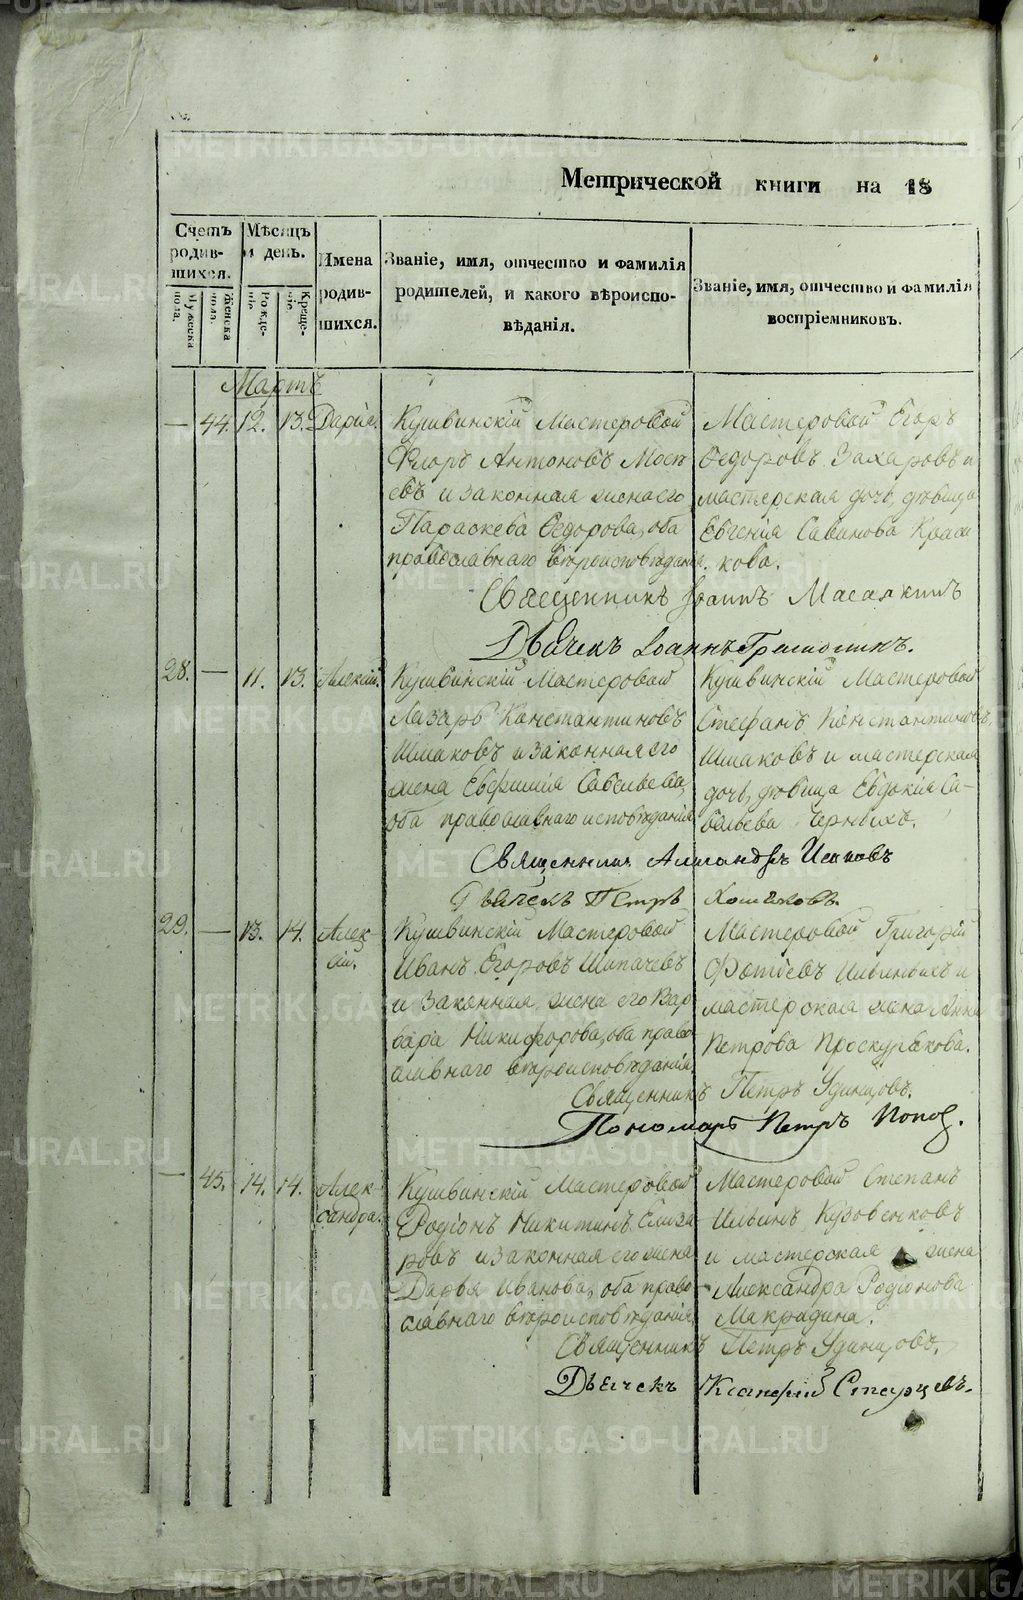 Метрической книги на 18
Счетъ родившихся.
Мужеска пола.
Женска пола.
Мѣсяцъ и день.
Рожденія.
Крещенія.
Имена родившихся.
Званіе, имя, отчество и фамилія
родителей, и какого вѣроиспо-
вѣданія.
Званіе, имя, отчество и фамилія
воспріемниковъ.
Мартъ
— 44. 12. 13. Дарія.
Кушвинскій Мастеровой
Флоръ Антоновъ
евъ и законная жена его
Параскева Ѳедорова, оба
православнаго вѣроисповѣданія.
Мастеровой Егоръ
Ѳедоровъ Захаровъ и
мастерская дочь, дѣвица
Евгенія Савинова Краси
кова.
Священникъ Іоаннъ
Дьячекъ Іоаннъ Грамотинъ.
28. — 11. 13. Алексій.
Кушвинскій Мастеровой
Лазарь Константиновъ
Шмаковъ и законная его
жена Евфимія Савельева,
оба православнаго исповѣданія
Кушвинскій Мастеровой
Стефанъ Константиновъ
Шмаковъ и мастерская
дочь, дѣвица Евдокія Са-
вельева Черныхъ.
Священникъ Александръ
Дьячекъ Петръ Хомяковъ.
29. — 13. 14. Алек
сій.
Кушвинскій Мастеровой
Иванъ Егоровъ Шипачевъ
и законная жена его Вар
вара Никифорова, оба право
славнаго вѣроисповѣданія
Мастеровой Григорій
Фотіевъ и
мастерская жена Анна
Петрова Проскурякова.
Священникъ Петръ Удинцовъ.
Пономарь Петръ Попов.
— 45. 14. 14. Алек-
сандра.
Кушвинскій Мастеровой
Родіонъ Никитинъ Елиза
ровъ и законная его жена
Дарья Иванова, оба право
славнаго вѣроисповѣданія
Мастеровой Степанъ
Ильинъ Кузовенковъ
и мастерская жена
Александра Родіонова
Макридина.
Священникъ Петръ Удинцовъ.
Дьячекъ Старцевъ.
METRIKI.GASO-URAL.RU